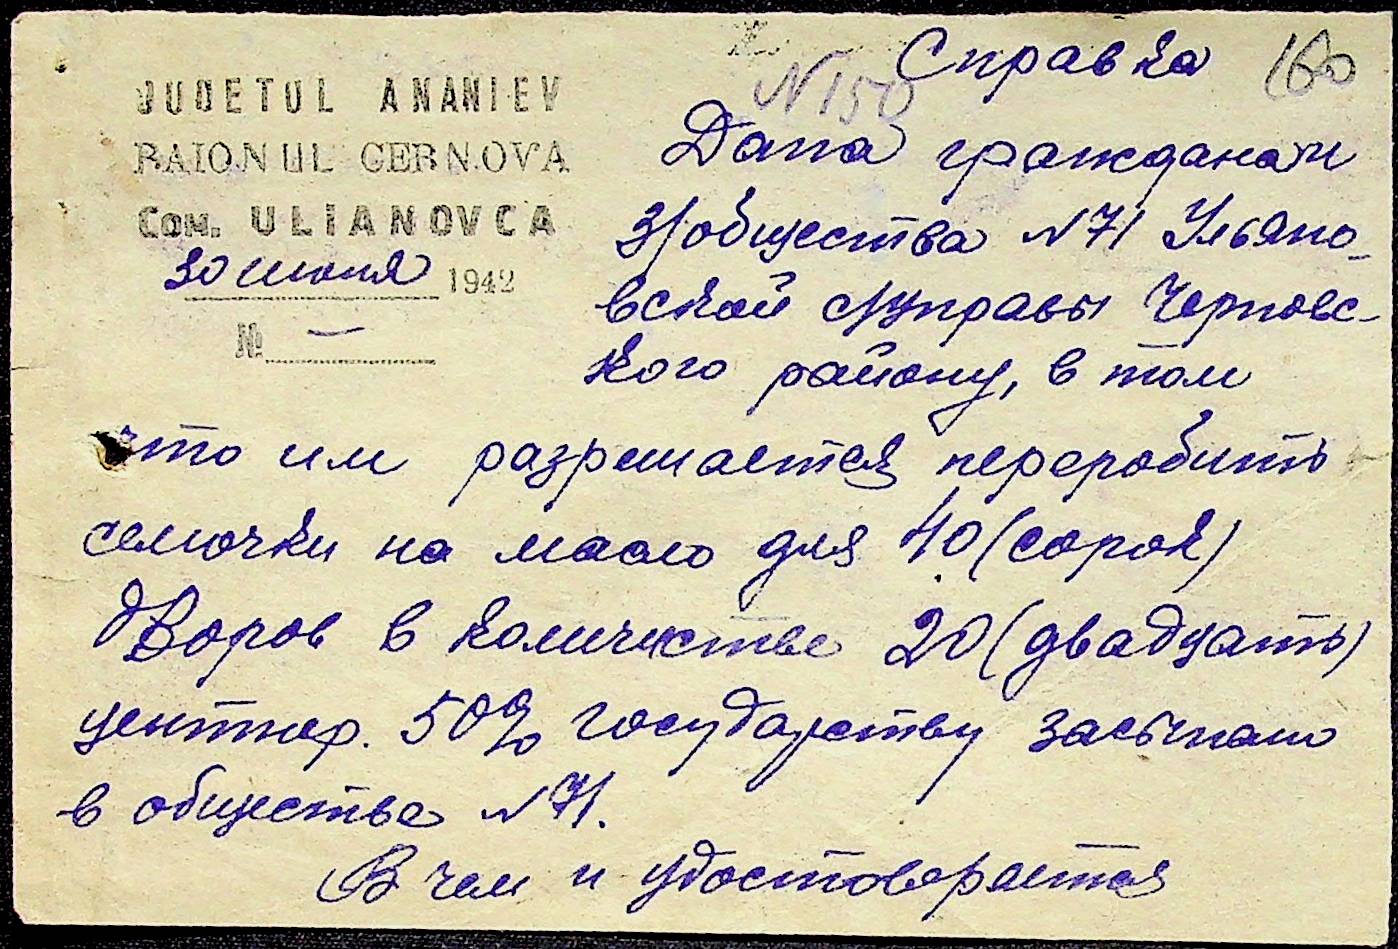 Справка 160
N 150
JUDETUL ANANIEV
RAIONUL CERNOVA
Com. ULIANOVCA
30 июня 1942
№ —
Дана гражданам
з/общества N 71 Ульяно-
вской с/управы Черновс-
кого району, в том
что им разрешается переробить
семочки на масло для 40 (сорок)
дворов в количестве 20 (двадцать)
центнер. 50% государству засыпано
в обществе N 71.
В чем и удостоверяется